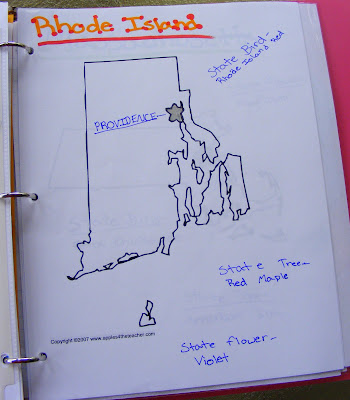 Rhode Island
State Bird-
Rhode Island Red
PROVIDENCE-
State Tree-
Red Maple
Copyright ©2007 www.apples4theteacher.com
State flower-
Violet